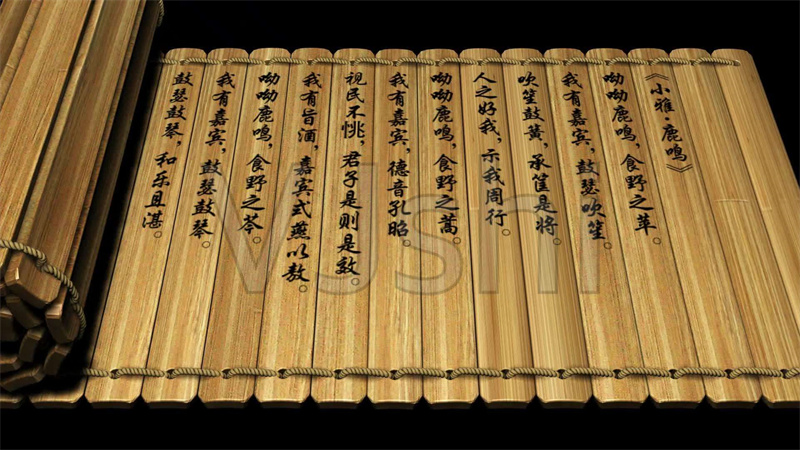 《小雅·鹿鸣》
呦呦鹿鸣，食野之苹。
我有嘉宾，鼓瑟吹笙。
吹笙鼓簧，承筐是将。
人之好我，示我周行。
呦呦鹿鸣，食野之蒿。
我有嘉宾，德音孔昭。
视民不恌，君子是则是效。
我有旨酒，嘉宾式燕以敖。
呦呦鹿鸣，食野之芩。
我有嘉宾，鼓瑟鼓琴。
鼓瑟鼓琴，和乐且湛。
VJshi